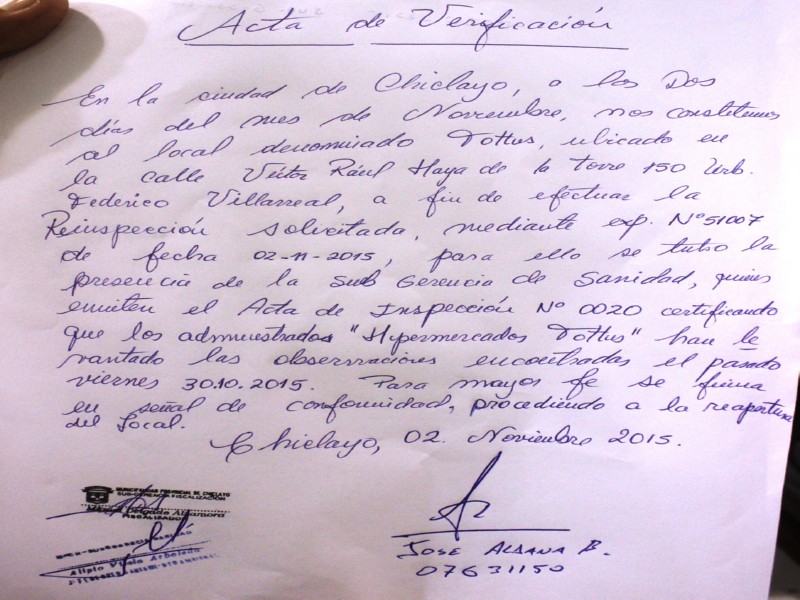 Acta de Verificación
En la ciudad de Chiclayo, a los Dos
días del mes de Noviembre, nos constituimos
al local denominado Tottus, ubicado en
la calle Víctor Rául Haya de la Torre 150 Urb.
Federico Villarreal, a fin de efectuar la
Reinspección solicitada, mediante exp. N° 51007
de fecha 02-11-2015, para ello se tubo la
presencia de la Sub Gerencia de Sanidad, quienes
emiten el Acta de Inspección N° 0020 certificando
que los administrados "Hypermercados Tottus" han le
vantado las observaciones encontradas el pasado
viernes 30.10.2015. Para mayor fe se firma
en señal de conformidad, procediendo a la reapertura
del Local.
Chiclayo, 02. Noviembre 2015.
MUNICIPALIDAD PROVINCIAL DE CHICLAYO
SUB-GERENCIA FISCALIZACIÓN
Delgado Altamora
FISCALIZADOR
Alipio Arboleda
JOSE ALDANA B.
07631150